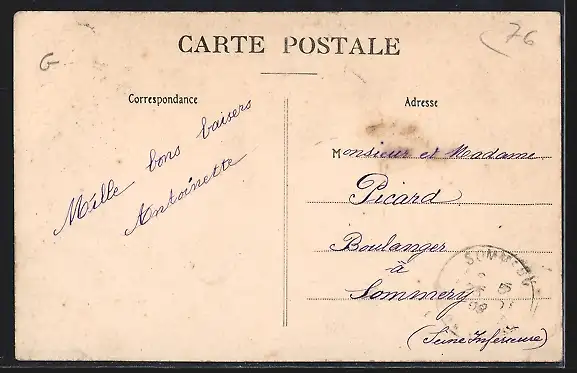 76
G
CARTE POSTALE
Correspondance
Adresse
Mille bons baisers
Antoinette
Monsieur et Madame
Picard
Boulanger
à
Sommery
(Seine Inférieure)
SOMMERY